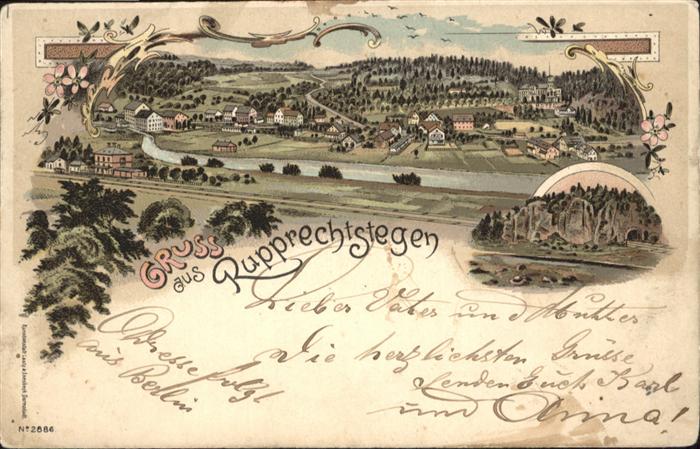 Gruss
aus Rupprechtstegen
Lieber Vater und Mutter
Die herzlichsten Grüsse
senden Euch Karl
und Anna!
Adresse folgt
aus Berlin
Kunstanstalt Lautz & Isenbeck, Darmstadt.
No 2886